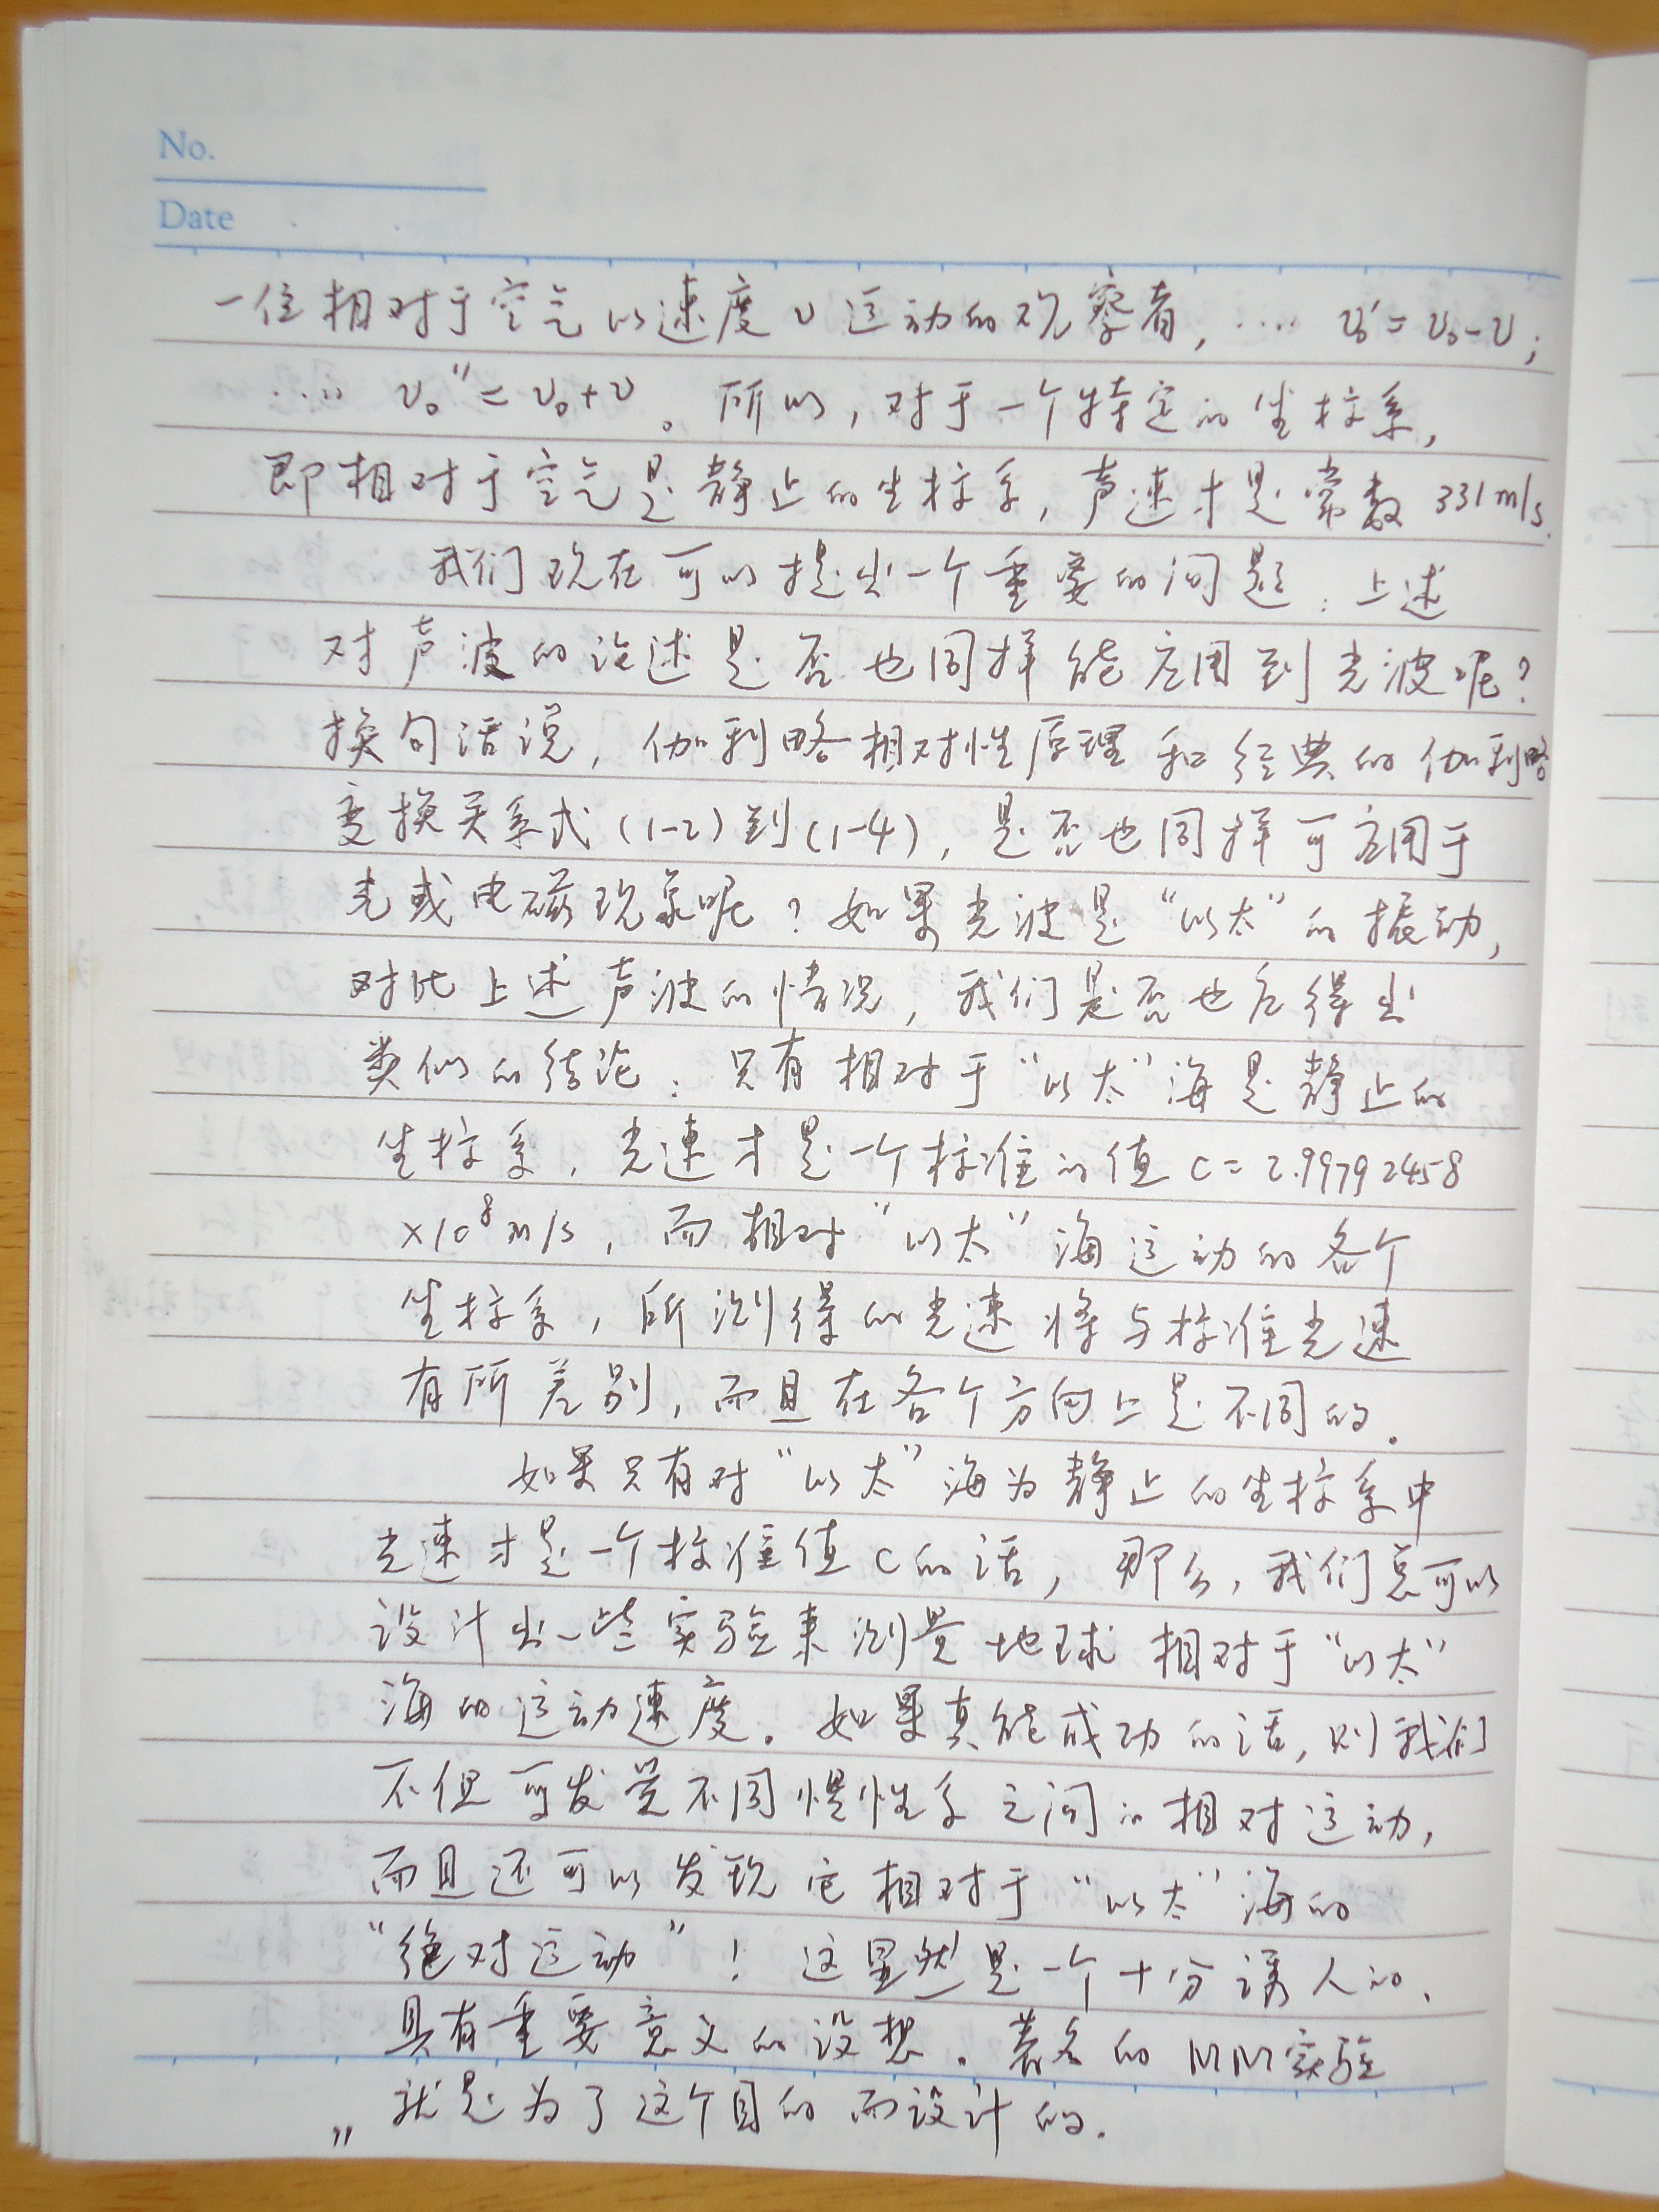 No.
Date
一位相对于空气以速度υ运动的观察者, .... υ₀′=υ₀-υ;
.... υ₀″=υ₀+υ。所以,对于一个特定的坐标系,
即相对于空气是静止的坐标系,声速才是常数331m/s.
我们现在可以提出一个重要的问题:上述
对声波的论述是否也同样能应用到光波呢?
换句话说,伽利略相对性原理和经典的伽利略
变换关系式(1-2)到(1-4),是否也同样可应用于
光或电磁现象呢?如果光波是“以太”的振动,
对比上述声波的情况,我们是否也应得出
类似的结论:只有相对于“以太”海是静止的
坐标系,光速才是一个标准的值c=2.99792458
×10⁸m/s,而相对“以太”海运动的各个
坐标系,所测得的光速将与标准光速
有所差别,而且在各个方向上是不同的.
如果只有对“以太”海为静止的坐标系中
光速才是一个标准值c的话,那么,我们总可以
设计出一些实验来测量地球相对于“以太”
海的运动速度.如果真能成功的话,则我们
不但可发觉不同惯性系之间的相对运动,
而且还可以发现它相对于“以太”海的
“绝对运动”!这显然是一个十分诱人的、
具有重要意义的设想.著名的MM实验
就是为了这个目的而设计的.
"